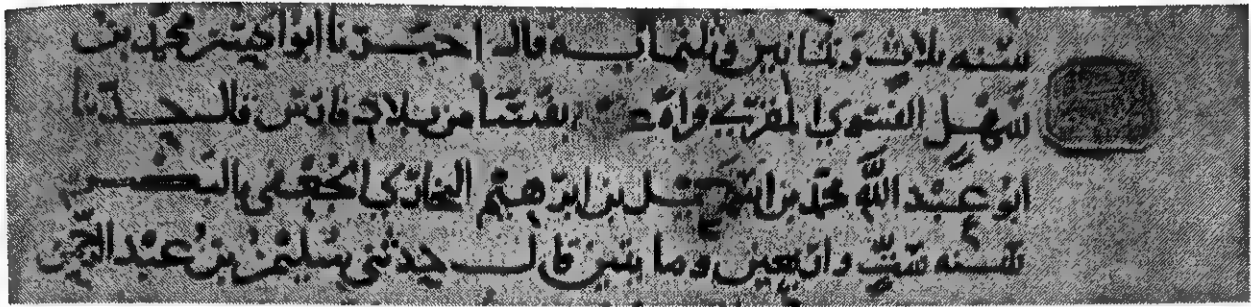 سنه ثلاث وثمانين وثلثمايه قال اخبرنا ابو الحسن محمد بن
سهل الفسوي المقرئ قراءة بفسا من بلاد فارس قال حدثنا
ابو عبد الله محمد بن اسمعيل بن ابرهيم البخاري الجعفي بالبصره
سنه ست واربعين ومايتين قال حدثني سليمن بن عبد الرحمن